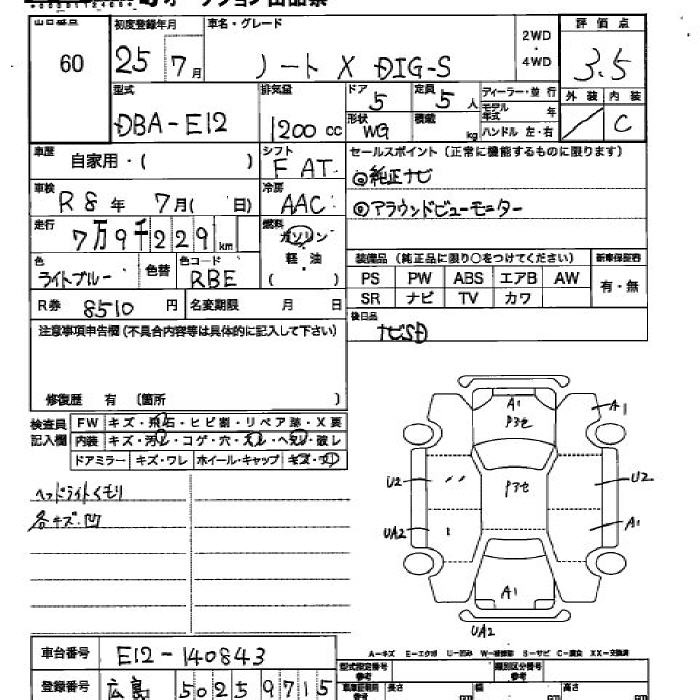 オークション出品票
出品番号 初度登録年月 車名・グレード 2WD・4WD 評価点
60 25年7月 ノート X DIG-S 3.5
型式 排気量 ドア 5 定員 5人 ディーラー・並行 外装 内装
DBA-E12 1200cc 形状 WG 積載 kg モデル年式 年 ハンドル 左・右 / C
車歴 自家用・( ) シフト F AT セールスポイント(正常に機能するものに限ります)
車検 R8年 7月( 日) 冷房 AAC ◎純正ナビ
◎アラウンドビューモニター
走行 7万9千229km 燃料 ガソリン
軽・油
( )
色 ライトブルー 色替 色コード RBE
装備品(純正品に限り○をつけてください) 新車保証書
PS PW ABS エアB AW 有・無
SR ナビ TV カワ
R券 8510円 名変期限 月 日 後日品
ナビSD
注意事項申告欄(不具合内容等は具体的に記入して下さい)
修復歴 有 〔箇所 〕
検査員記入欄 FW キズ・飛石・ヒビ割・リペア跡・X要
内装 キズ・汚レ・コゲ・穴・スレ・ヘタレ・破レ
ドアミラー キズ・ワレ ホイール・キャップ キズ・ワレ
ヘッドライトくもり
各キズ・凹
A1
A1
U2
U2
UA2
A1
A1
UA2
A-キズ E-エクボ U-凹み S-サビ XX-交換済
車台番号 E12-140843
型式指定番号 参考 類別区分番号 参考
登録番号 広島 50259715
長さ 幅 高さ